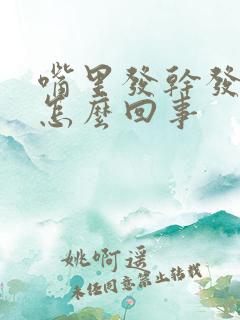 嘴里發幹發
怎麽回事
姚啊遥
未经同意禁止转载